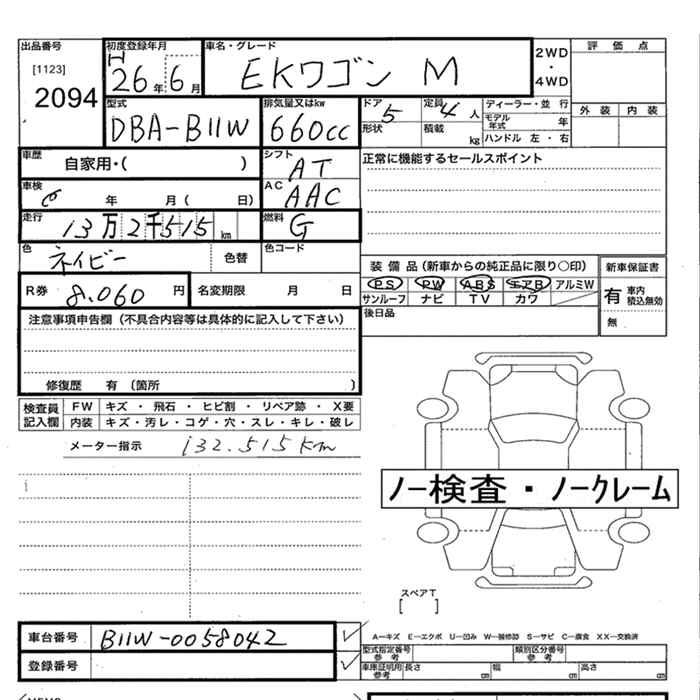 出品番号
[1123]
2094
初度登録年月
H
26年6月
車名・グレード
EKワゴン M
2WD
・
4WD
評価点
外装 内装
型式
DBA-B11W
排気量又はkw
660cc
ドア 5
定員 4 人
形状
積載 kg
ディーラー・並 行
モデル年式 年
ハンドル 左・右
車歴
自家用・( )
シフト
AT
正常に機能するセールスポイント
車検
年 月( 日)
AC
AAC
走行
13万2千515km
燃料
G
色
ネイビー
色替
色コード
装備品(新車からの純正品に限り〇印)
PS PW ABS エアB アルミW
サンルーフ ナビ TV カワ
新車保証書
有 車内積込無効
無
R券 8,060 円
名変期限 月 日
後日品
注意事項申告欄(不具合内容等は具体的に記入して下さい)
修復歴 有 〔箇所 〕
検査員記入欄
FW キズ・飛石・ヒビ割・リペア跡・X要
内装 キズ・汚レ・コゲ・穴・スレ・キレ・破レ
メーター指示 132.515km
ノー検査・ノークレーム
スペアT
[ ]
車台番号 B11W-0058042
登録番号
A—キズ E—エクボ U—凹み W—補修跡 S—サビ C—腐食 XX—交換済
型式指定番号 参考
類別区分番号 参考
車庫証明用 参考 長さ cm 幅 cm 高さ cm
MEMO